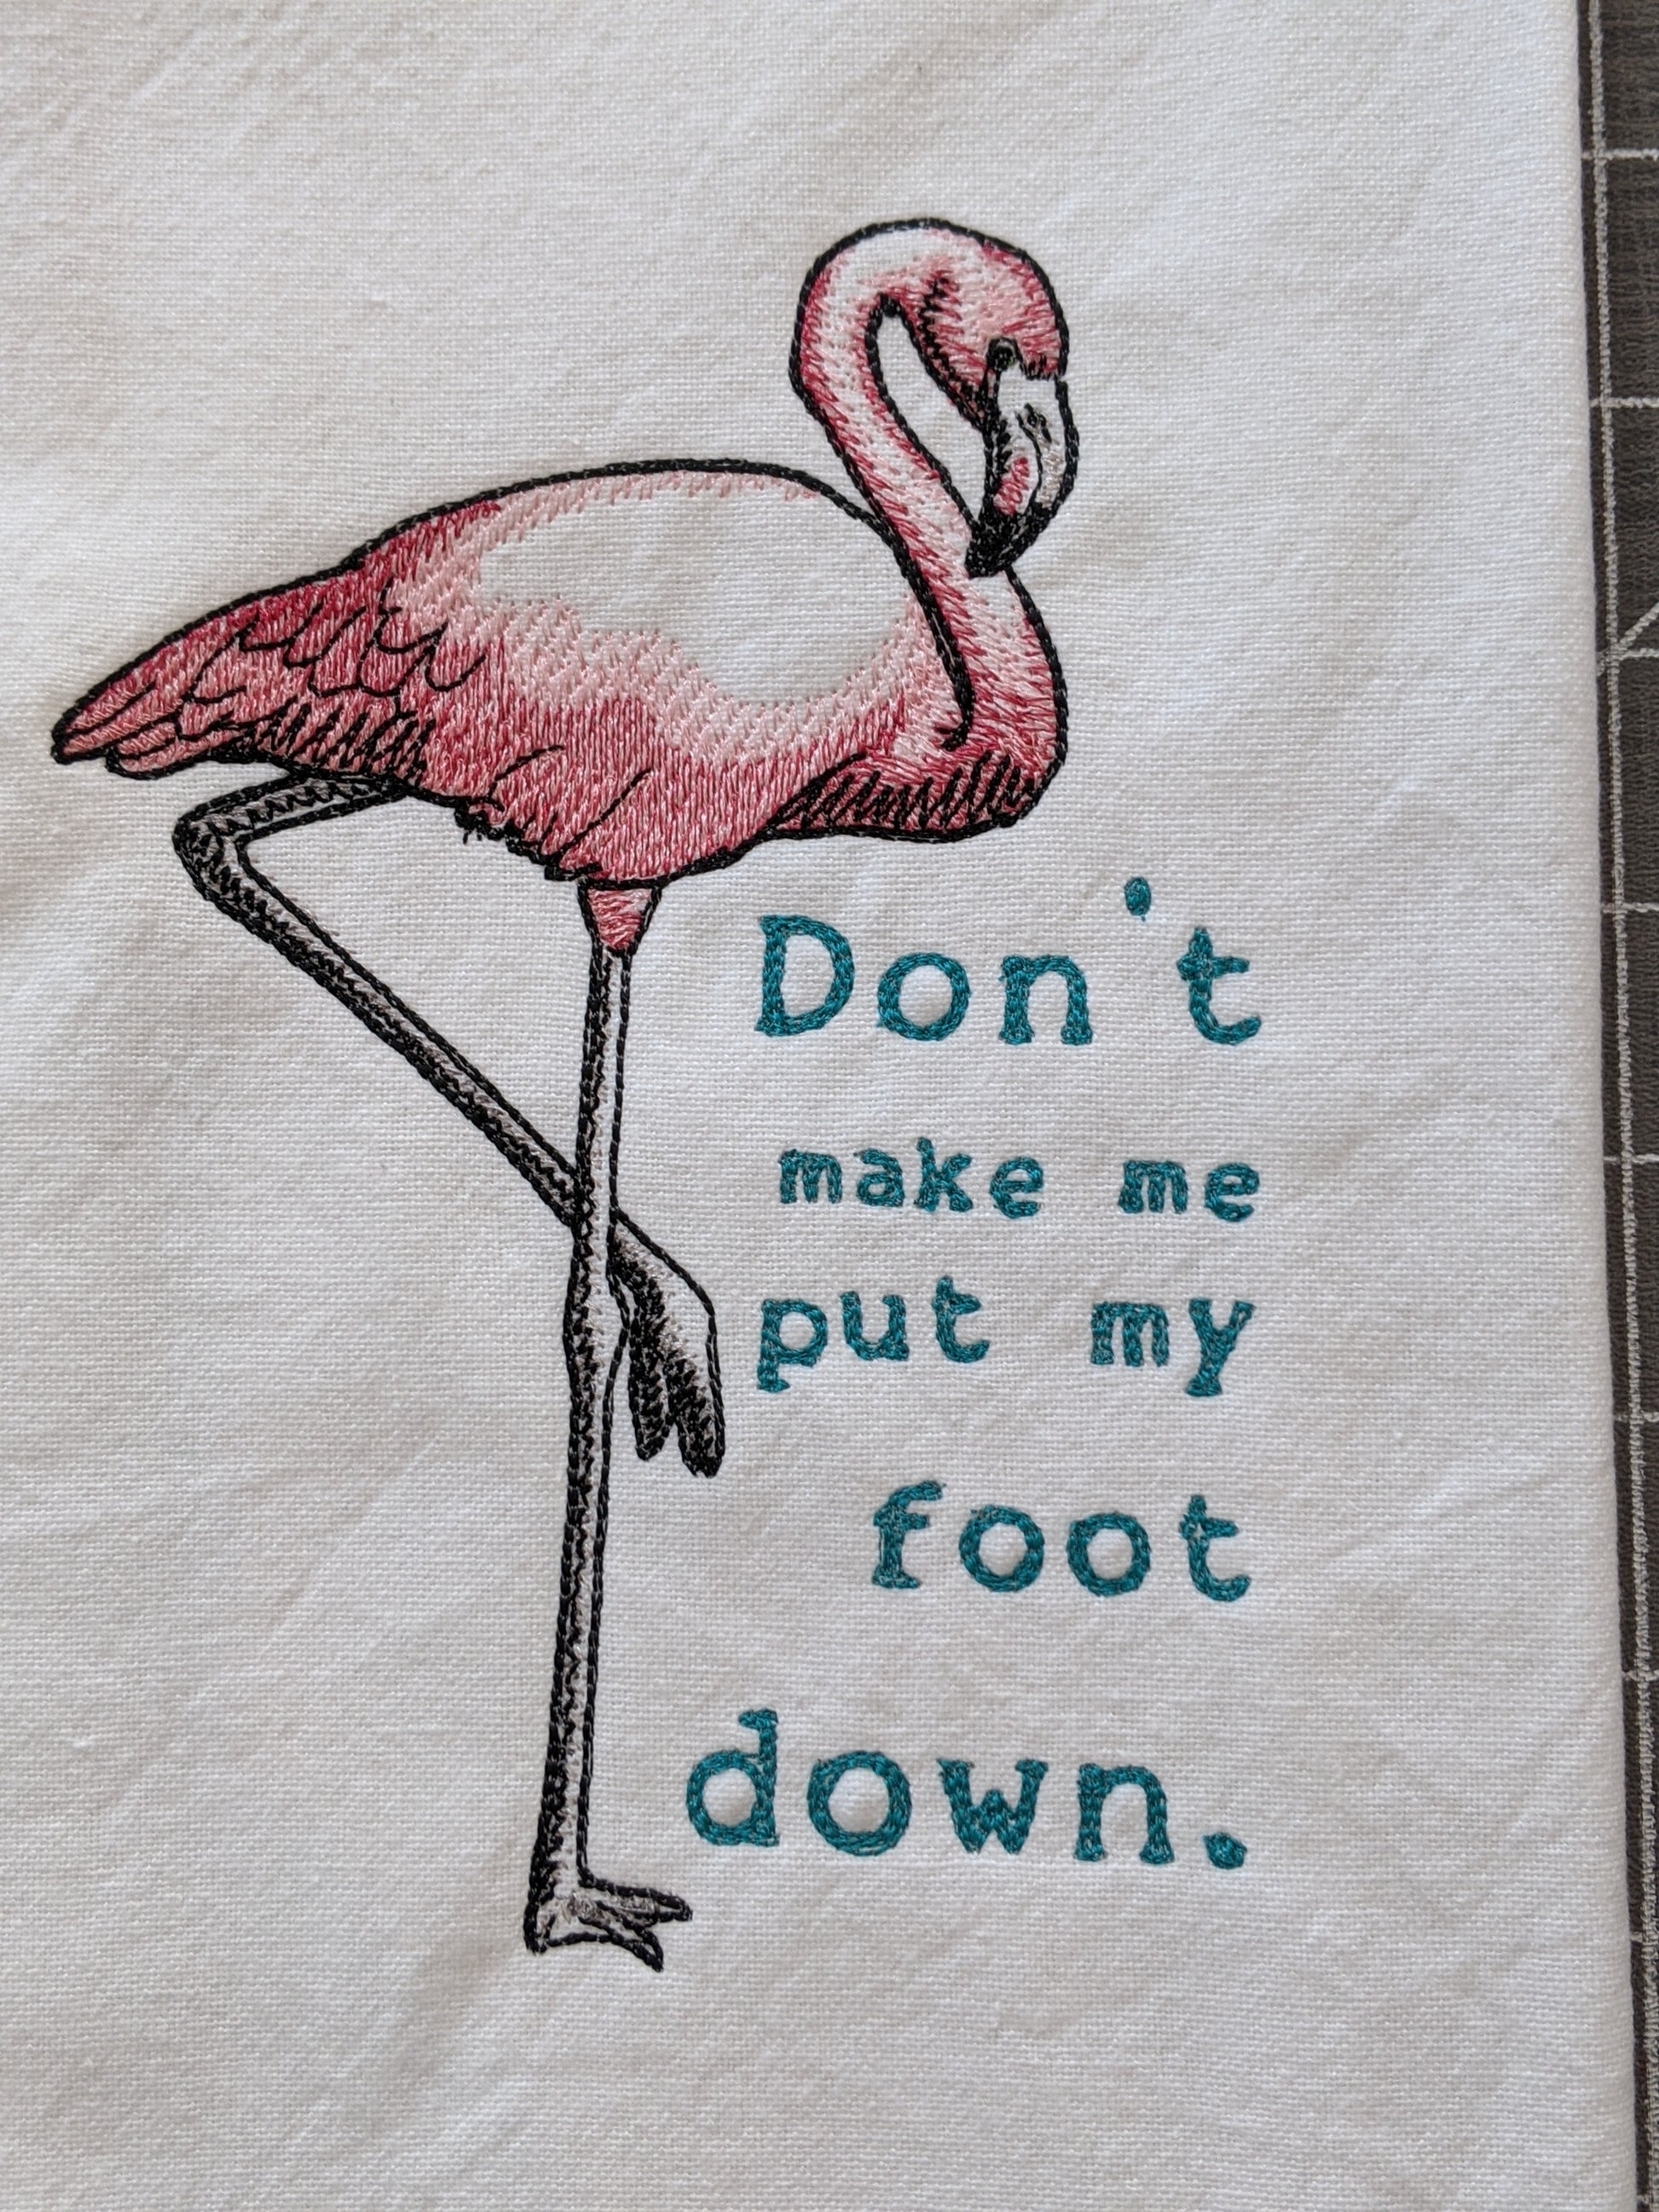 Don't
make me
put my
foot
down.